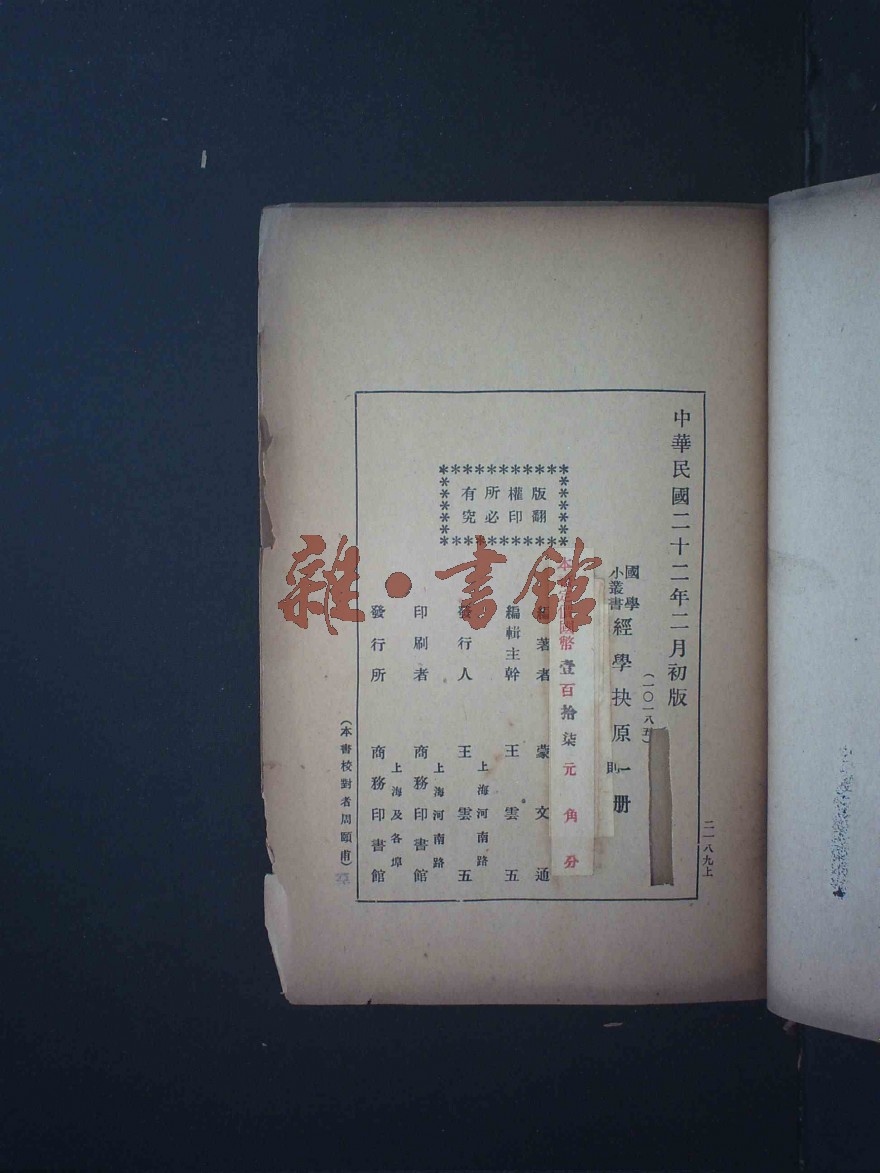 中華民國二十二年二月初版
(一〇一八五)
國學
小叢書
經學抉原一册
版權所有
翻印必究
本定價國幣壹百拾柒元角分
著者 蒙文通
編輯主幹 王雲五
上海河南路
發行人 王雲五
上海河南路
印刷者 商務印書館
上海及各埠
發行所 商務印書館
(本書校對者周頤甫)
二一八九上
雜·書館